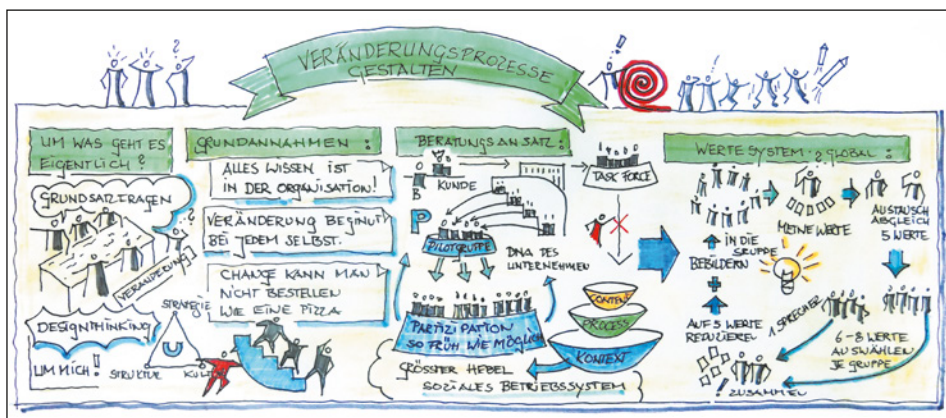 VERÄNDERUNGSPROZESSE
GESTALTEN
UM WAS GEHT ES
EIGENTLICH?
GRUNDSATZFRAGEN
VERÄNDERUNG
DESIGNTHINKING
UM MICH!
STRATEGIE
U
STRUKTUR
KULTUR
GRUNDANNAHMEN:
ALLES WISSEN IST
IN DER ORGANISATION!
VERÄNDERUNG BEGINNT
BEI JEDEM SELBST.
CHANGE KANN MAN
NICHT BESTELLEN
WIE EINE PIZZA
BERATUNGSANSATZ:
O
B
P
KUNDE
TASK FORCE
PILOTGRUPPE
DNA DES
UNTERNEHMEN
PARTIZIPATION
SO FRÜH WIE MÖGLICH
CONTENT
PROCESS
KONTEXT
GRÖSSTER HEBEL
SOZIALES BETRIEBSSYSTEM
WERTESYSTEM GLOBAL:
MEINE WERTE
AUSTAUSCH
ABGLEICH
5 WERTE
IN DIE
GRUPPE
BEBILDERN
+
AUF 5 WERTE
REDUZIEREN
1 SPRECHER
6-8 WERTE
AUSWÄHLEN
JE GRUPPE
! ZUSAMMEN